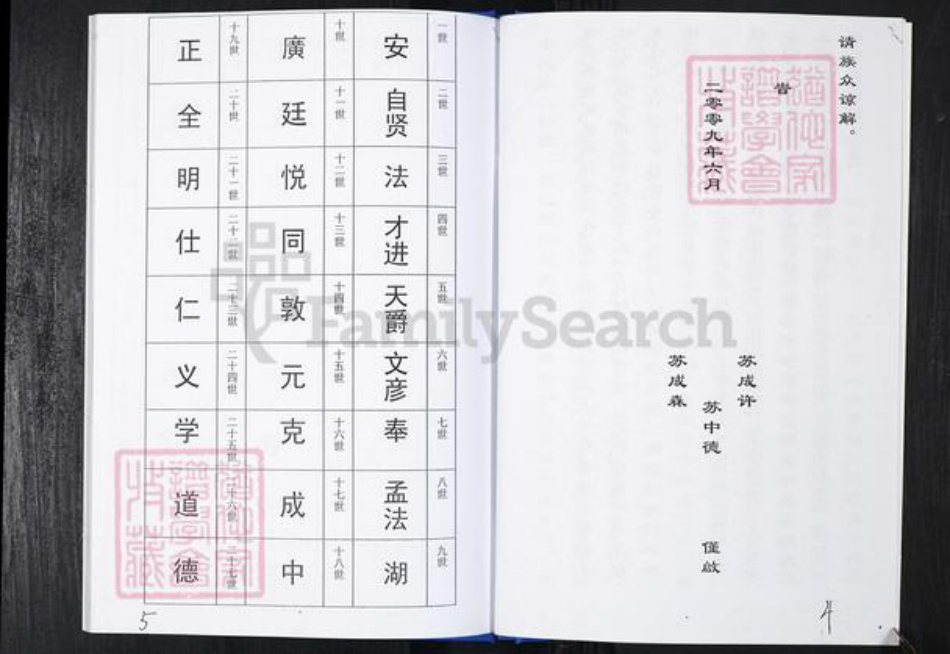 请族众谅解。
告
二零零九年六月
苏成许
苏中德
苏成森
僅啟
4
一世
安
二世
自贤
三世
法
四世
才进
五世
天爵
六世
文彦
七世
奉
八世
孟法
九世
湖
十世
廣
十一世
廷
十二世
悦
十三世
同
十四世
敦
十五世
元
十六世
克
十七世
成
十八世
中
十九世
正
二十世
全
二十一世
明
二十二世
仕
二十三世
仁
二十四世
义
二十五世
学
二十六世
道
二十七世
德
5
FamilySearch